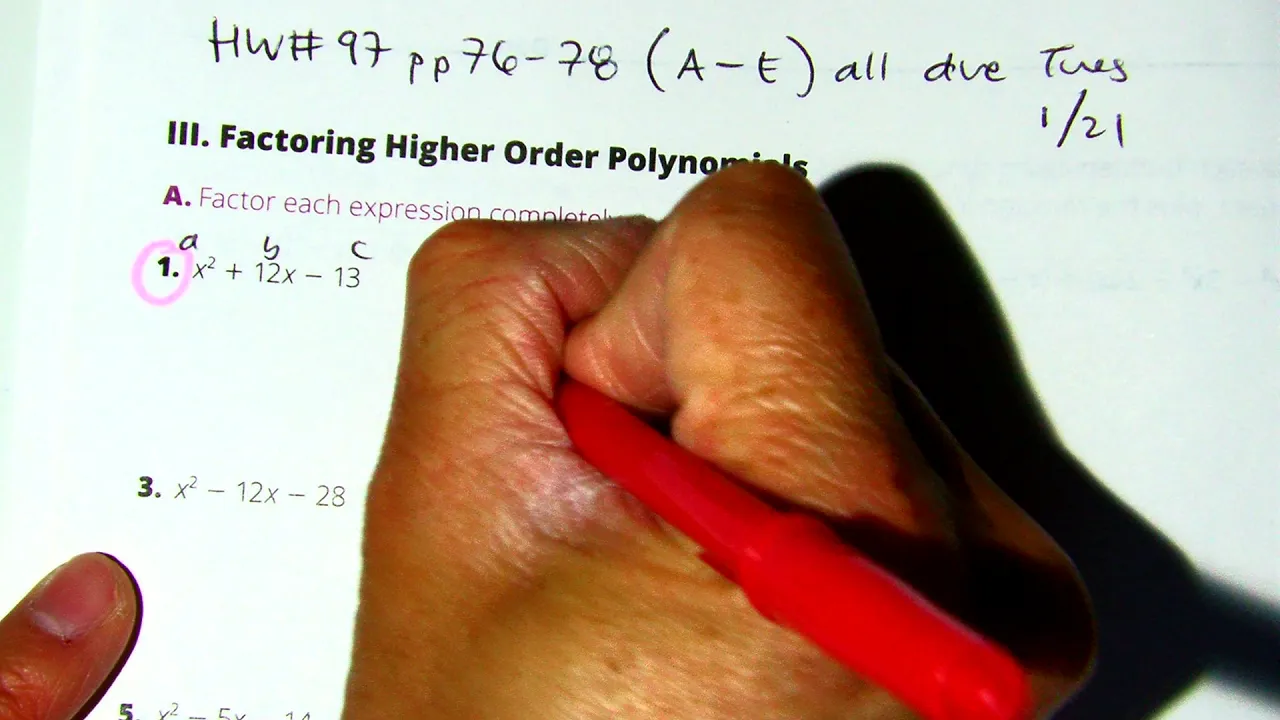 HW# 97 pp 76-78 (A-E) all due Tues
1/21
III. Factoring Higher Order Polynomials
A. Factor each expression completely
a b c
1. x² + 12x − 13
3. x² − 12x − 28
5. x² − 5x − 14